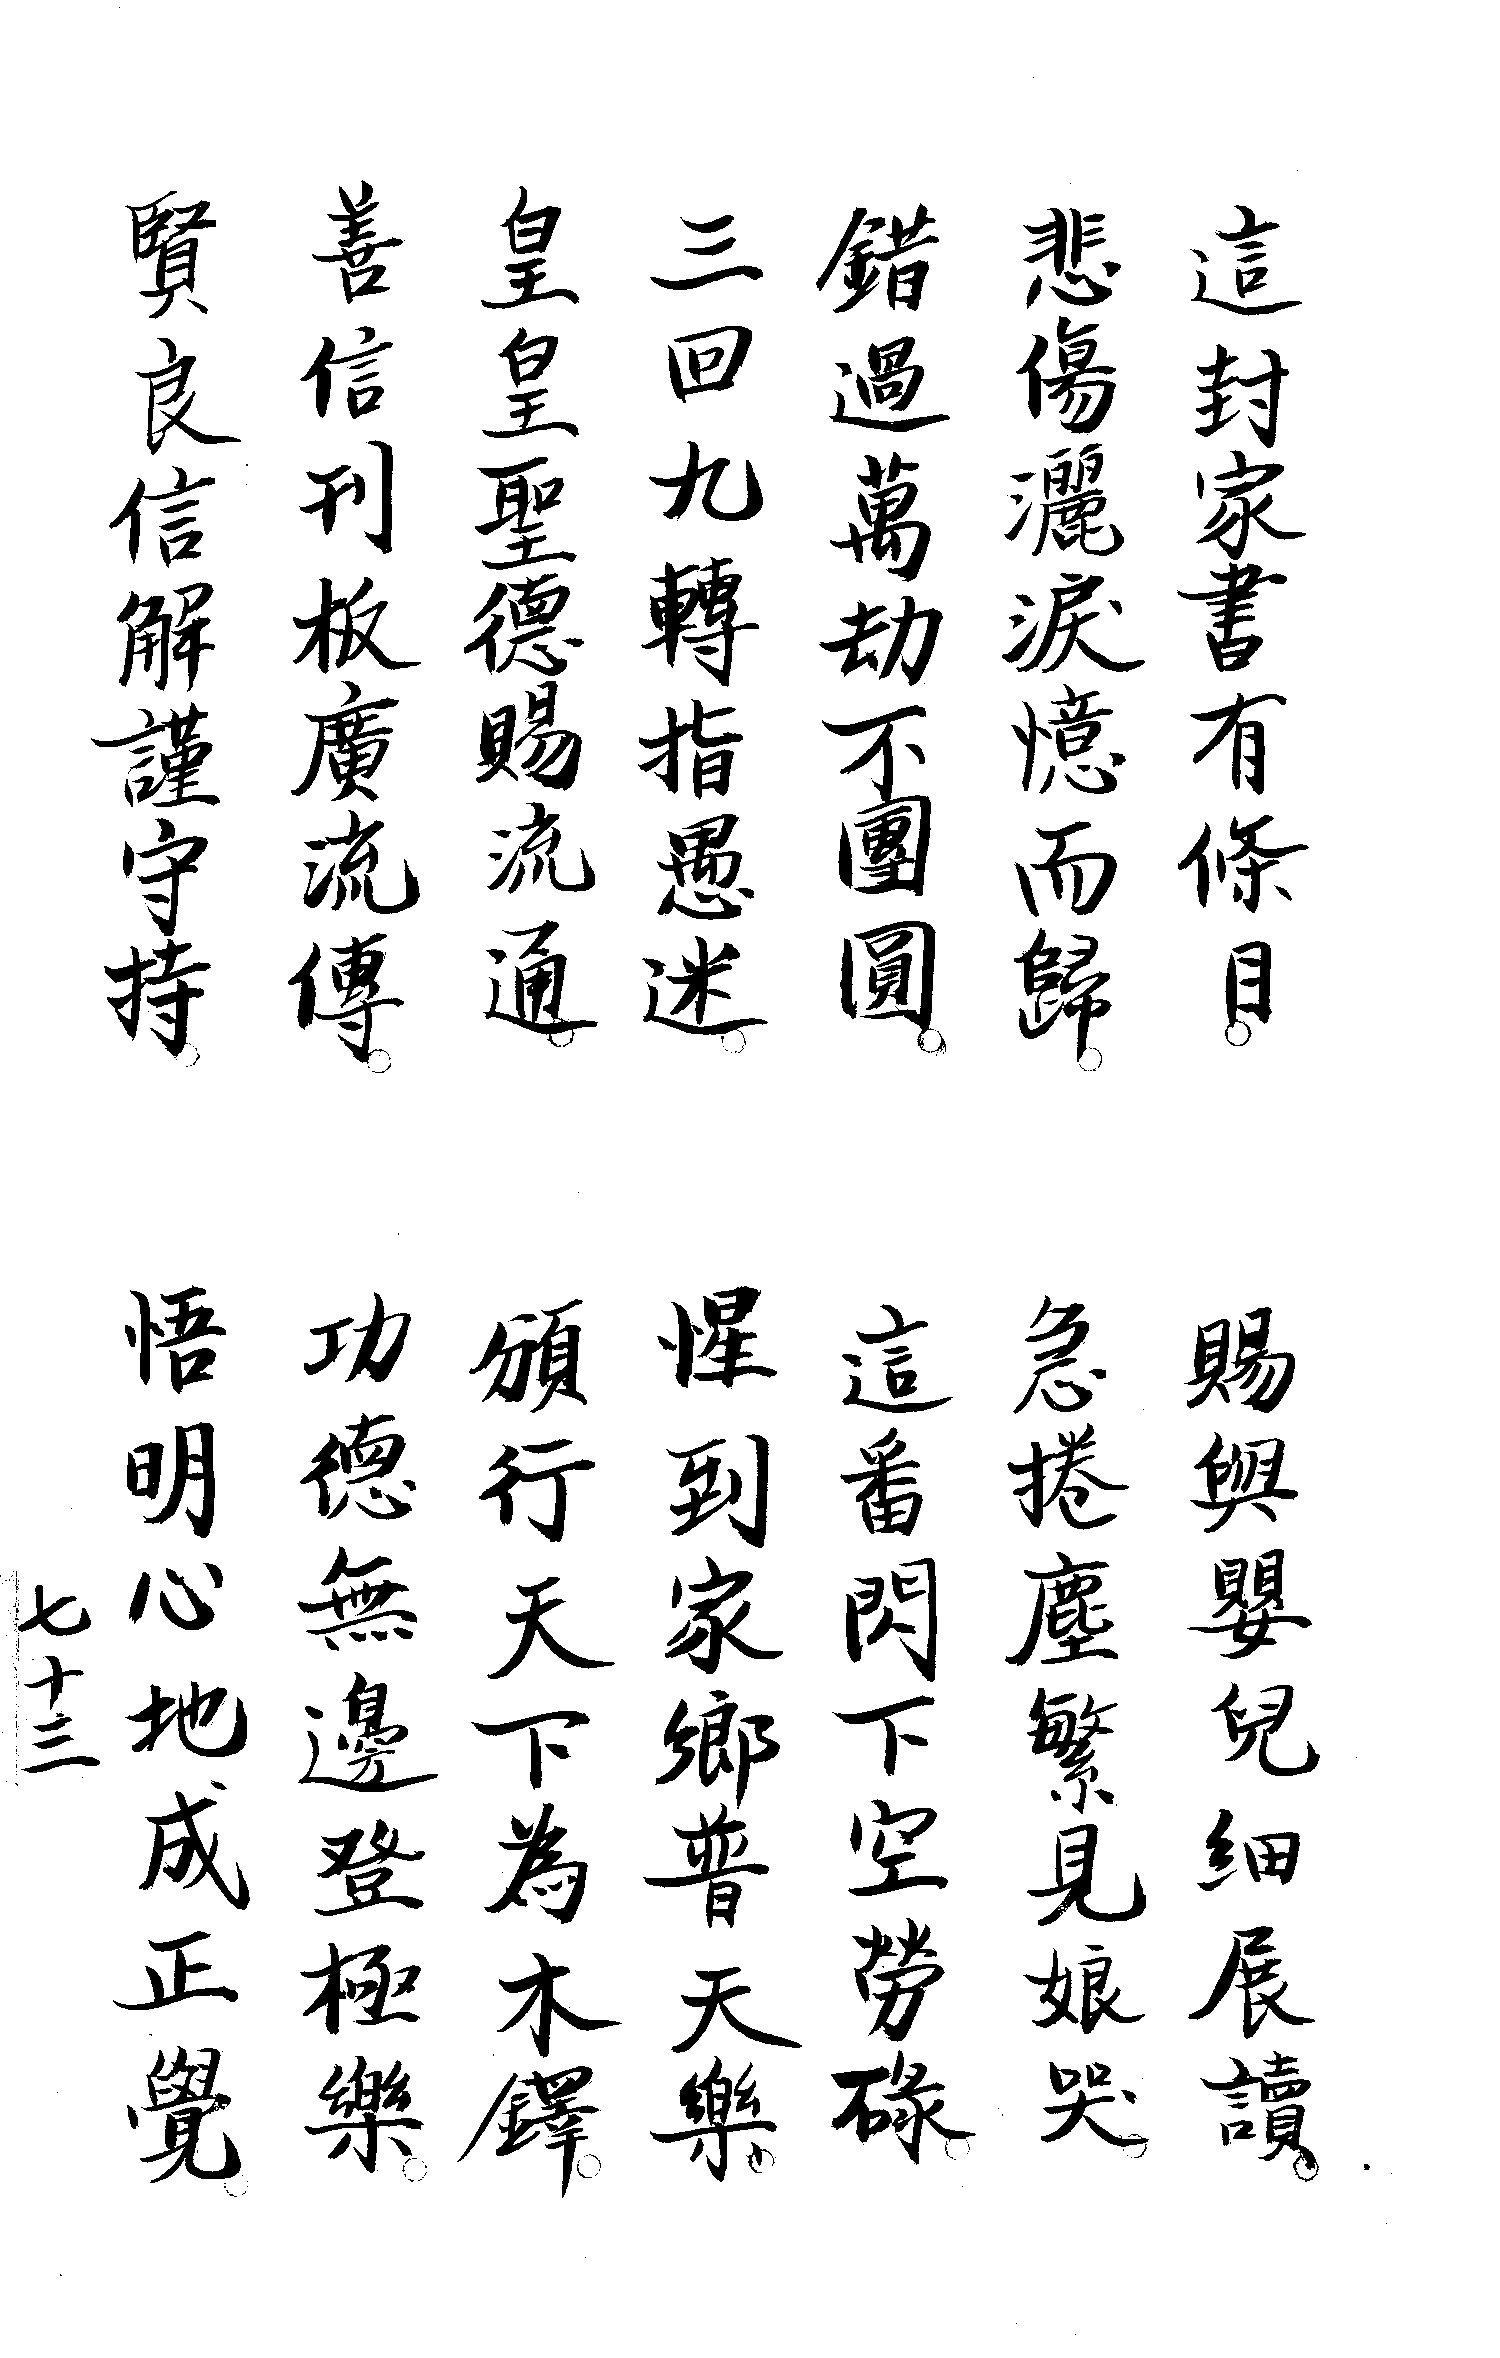 這封家書有條目。賜與嬰兒細展讀。
悲傷灑淚憶而歸。急捲塵繁見娘哭。
錯過萬劫不團圓。這番閃下空勞碌。
三回九轉指愚迷。惺到家鄉普天樂。
皇皇聖德賜流通。頒行天下為木鐸。
善信刊板廣流傳。功德無邊登極樂。
賢良信解謹守持。悟明心地成正覺。
七十三